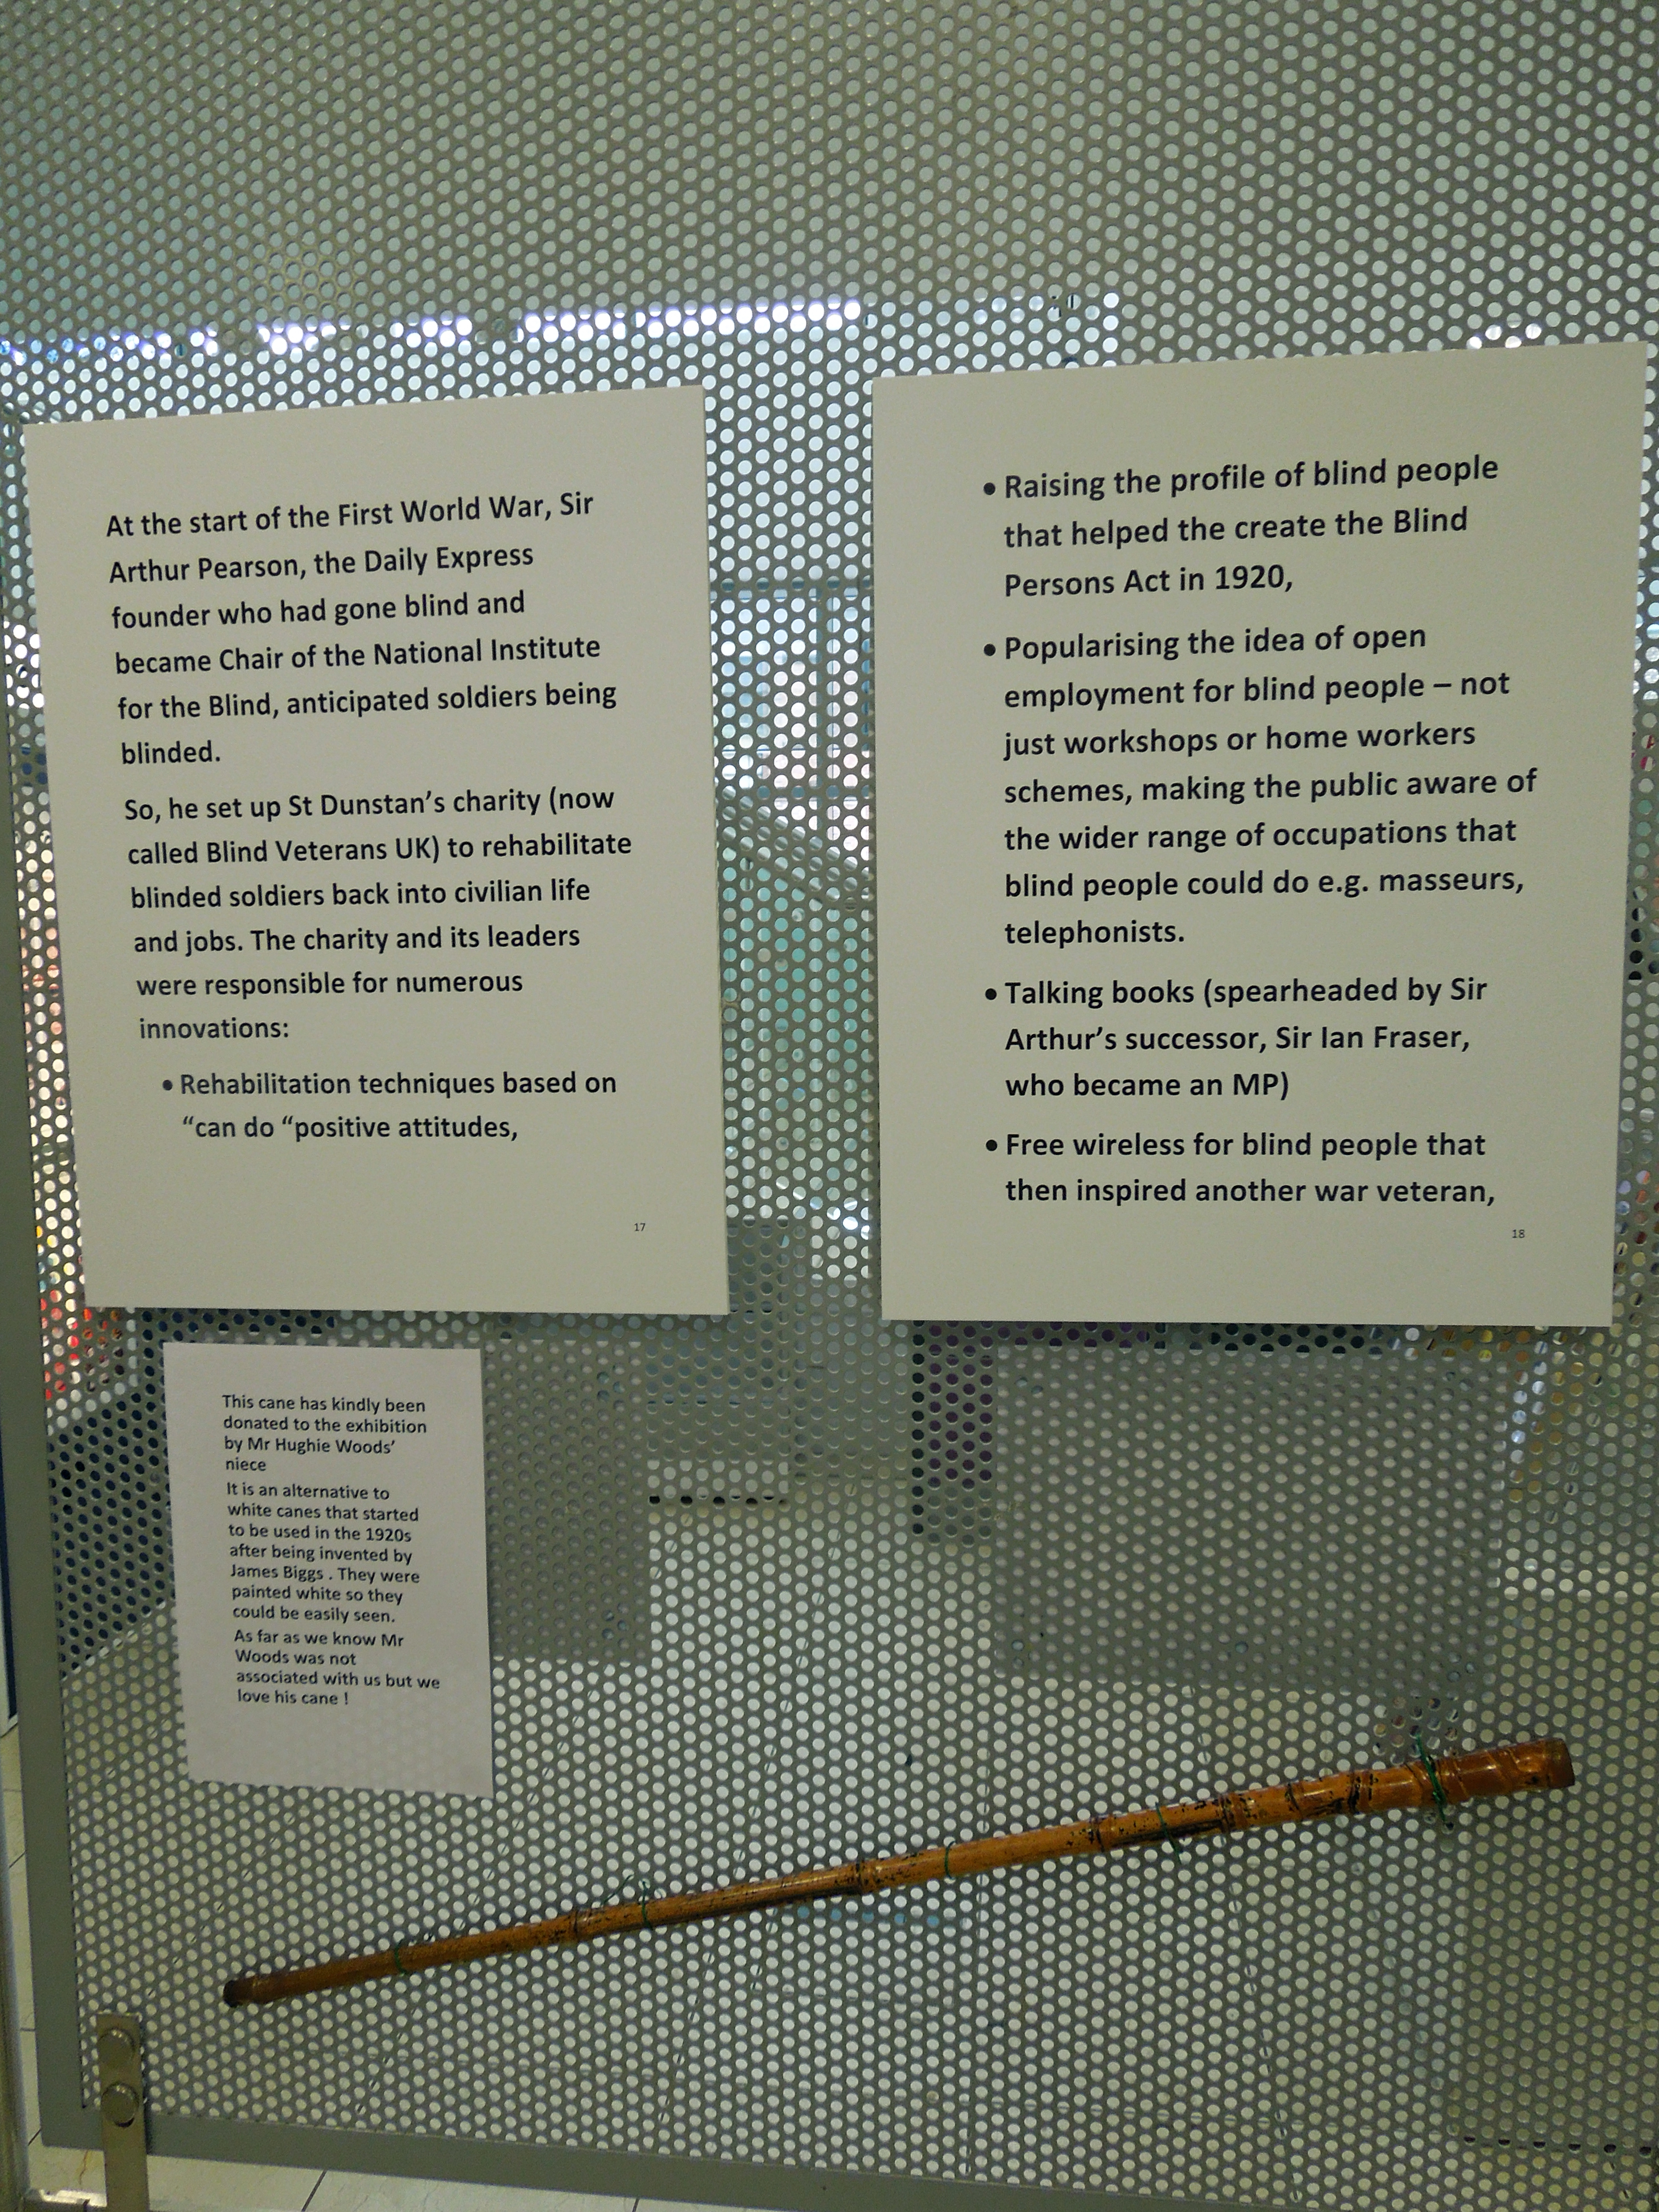 At the start of the First World War, Sir
Arthur Pearson, the Daily Express
founder who had gone blind and
became Chair of the National Institute
for the Blind, anticipated soldiers being
blinded.
So, he set up St Dunstan’s charity (now
called Blind Veterans UK) to rehabilitate
blinded soldiers back into civilian life
and jobs. The charity and its leaders
were responsible for numerous
innovations:
• Rehabilitation techniques based on
“can do “positive attitudes,
17
• Raising the profile of blind people
that helped the create the Blind
Persons Act in 1920,
• Popularising the idea of open
employment for blind people – not
just workshops or home workers
schemes, making the public aware of
the wider range of occupations that
blind people could do e.g. masseurs,
telephonists.
• Talking books (spearheaded by Sir
Arthur’s successor, Sir Ian Fraser,
who became an MP)
• Free wireless for blind people that
then inspired another war veteran,
18
This cane has kindly been
donated to the exhibition
by Mr Hughie Woods’
niece
It is an alternative to
white canes that started
to be used in the 1920s
after being invented by
James Biggs . They were
painted white so they
could be easily seen.
As far as we know Mr
Woods was not
associated with us but we
love his cane !